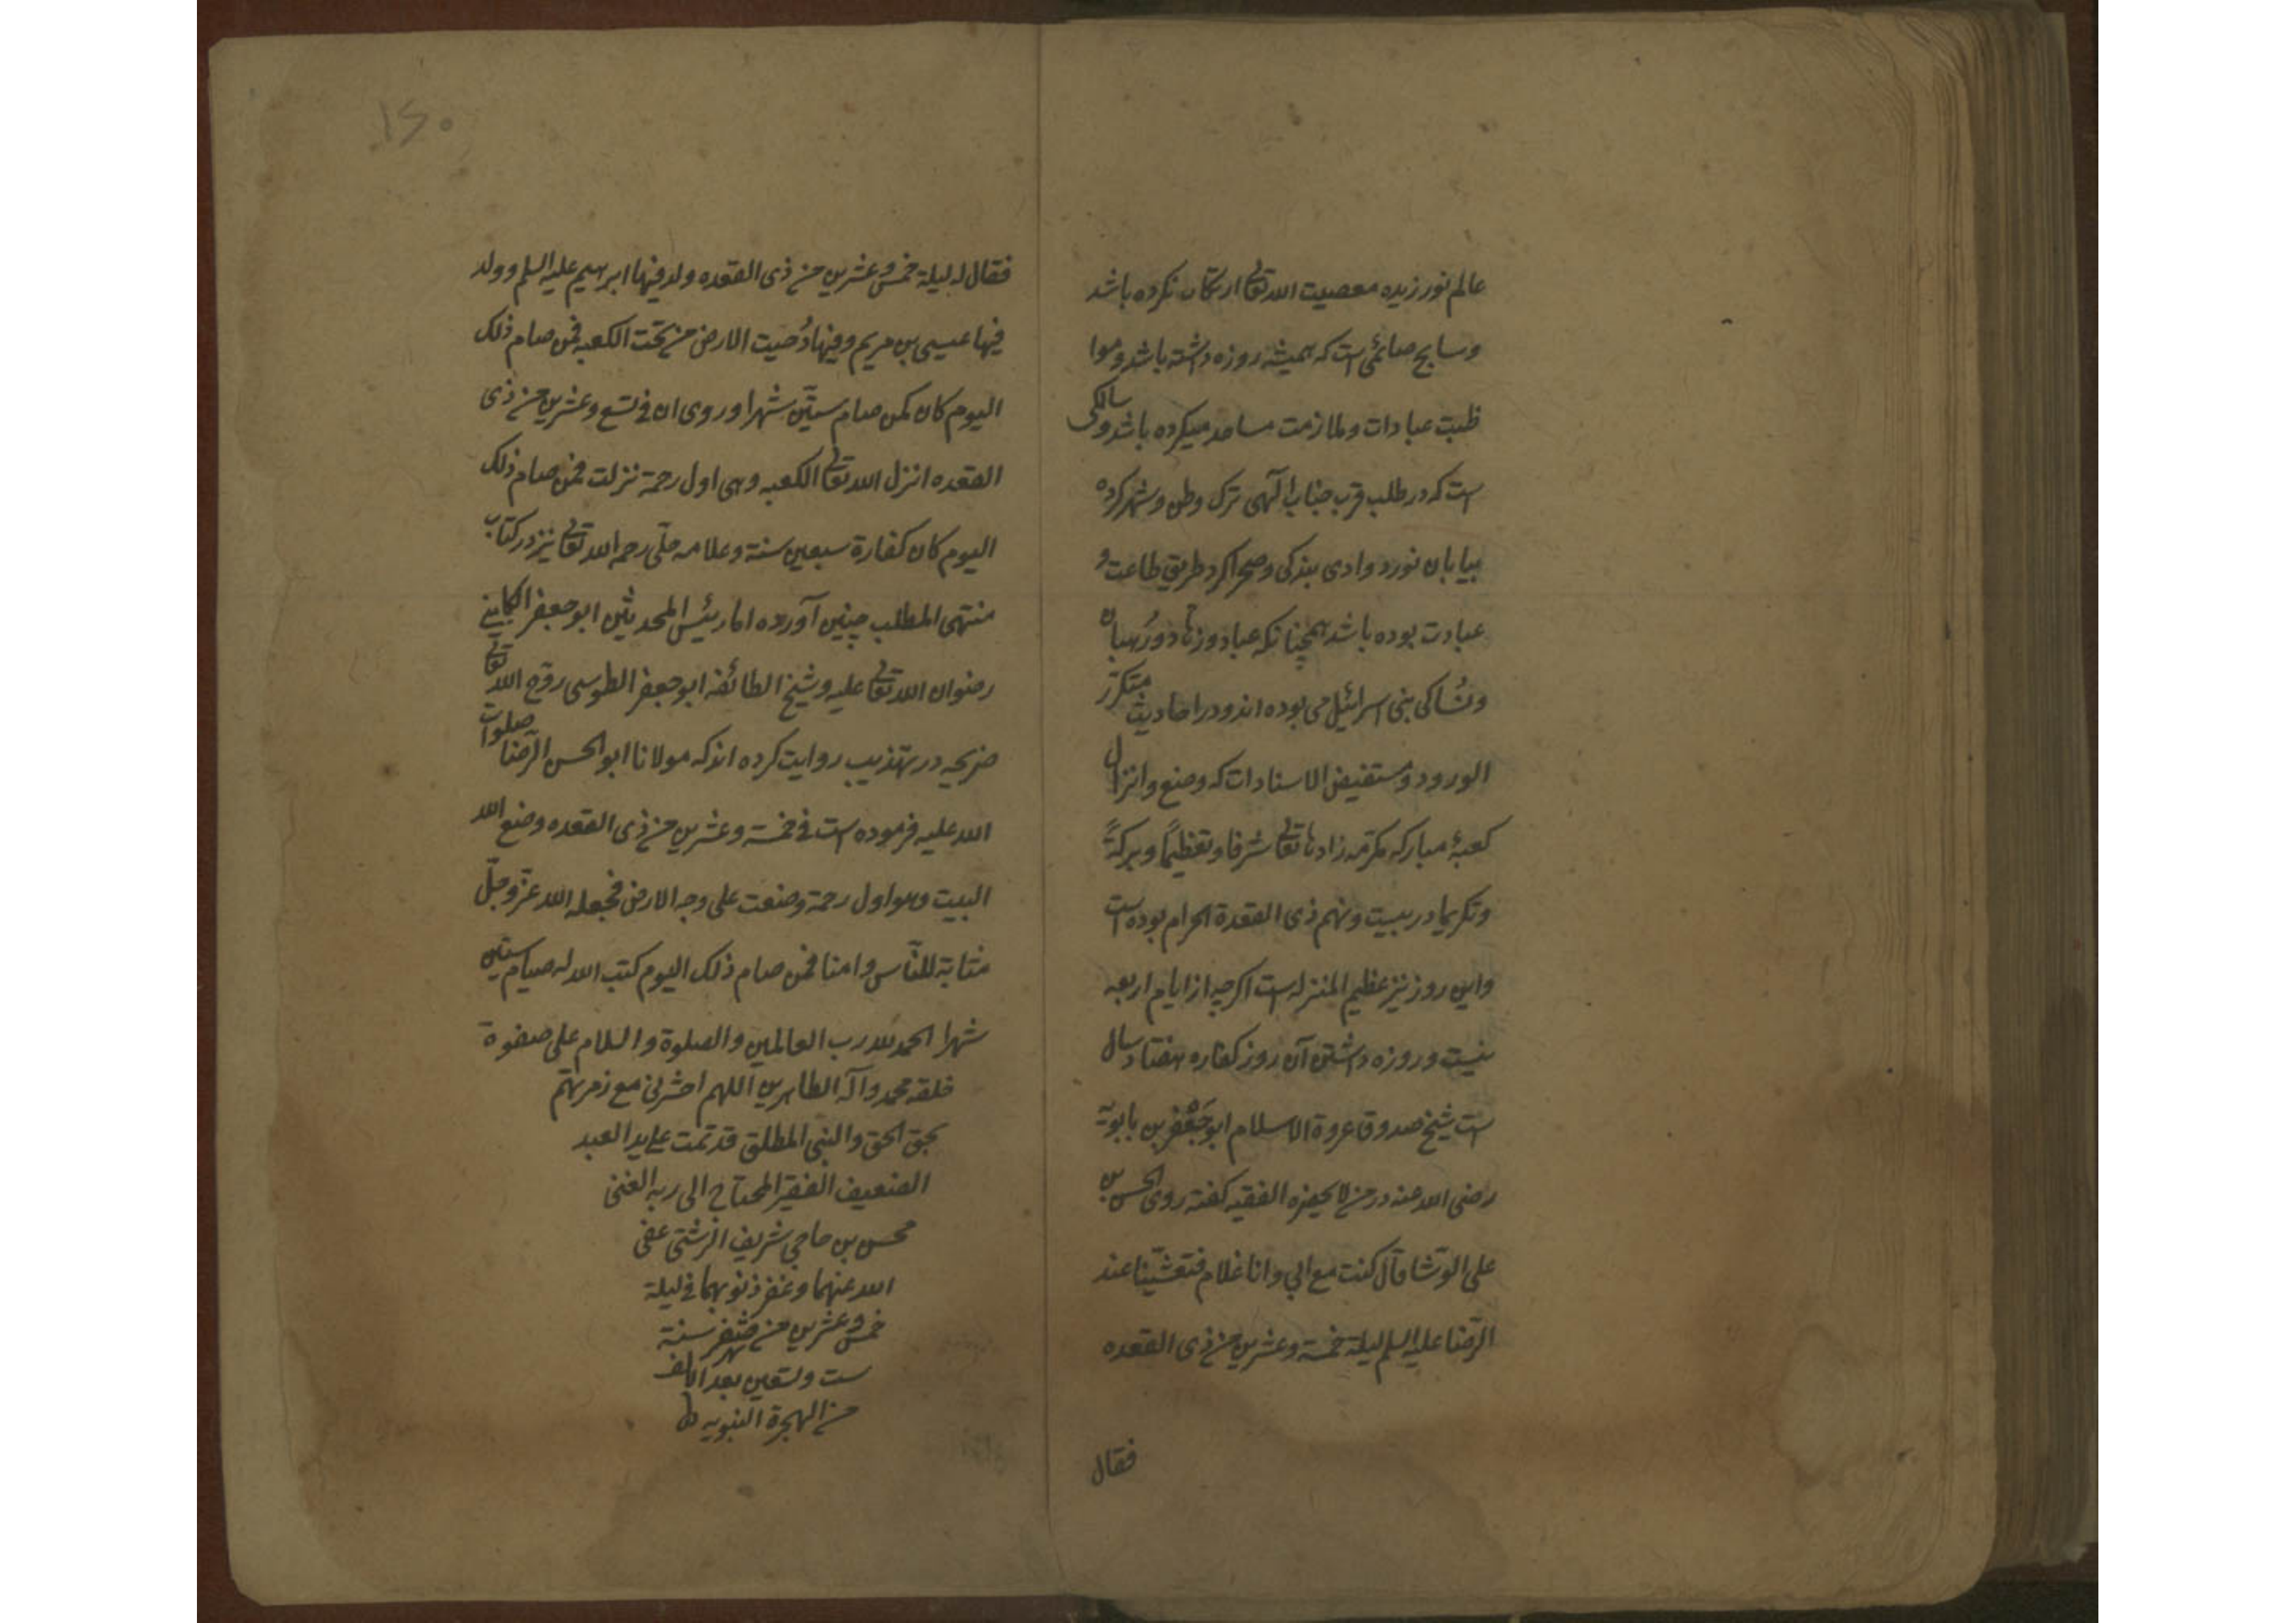 عالم نورزیده معصیت الله تعالی ارتکاب نکرده باشد
وسایح صائمی است که همیشه روزه داشته باشد وموا
ظبت عبادات وملازمت مساجد میکرده باشد وسالکی
است که در طلب قرب جناب الهی ترک وطن وشهر کرده
بیابان نورد وادی بندکی وصحراکرد طریق طاعت و
عبادت بوده باشد همچنانکه عباد وزهاد ورهبان
ونساک بنی اسرائیل می بوده اند ودر احادیث متکرر
الورود ومستفیض الاسنادات که وضع وانزال
کعبهٔ مبارکه مکرمه زادها تعالی شرفا وتعظیماً وبرکةً
وتکریما در بیست ونهم ذی القعدة الحرام بوده است
واین روز نیز عظیم المنزله است اکرچه از ایام اربعه
نیست وروزه داشتن آن روز کفاره هفتاد سال
است شیخ صدوق عروة الاسلام ابوجعفر بن بابویه
رضی الله عنه در من لا یحضره الفقیه کفته روی الحسن بن
علی الوشا قال کنت مع ابی وانا غلام فتعشینا عند
الرضا علیه السلم لیلة خمسة وعشرین من ذی القعده
فقال
۱۶۰
فقال له لیلة خمس وعشرین من ذی القعده ولد فیها ابرهیم علیه السلم وولد
فیها عیسی بن مریم وفیها دُحیت الارض من تحت الکعبه فمن صام ذلک
الیوم کان کمن صام ستین شهرا وروی ان فی تسع وعشرین من ذی
القعده انزل الله تعالی الکعبه وهی اول رحمة نزلت فمن صام ذلک
الیوم کان کفارة سبعین سنة وعلامه حلی رحمه الله تعالی نیز در کتاب
منتهی المطلب چنین آورده اما رئیس المحدثین ابوجعفر الکلینی
رضوان الله تعالی علیه وشیخ الطائفه ابوجعفر الطوسی روح الله تعالی
ضریحه در تهذیب روایت کرده اند که مولانا ابوالحسن الرضا صلوات
الله علیه فرموده است فی خمسة وعشرین من ذی القعده وضع الله
البیت وهو اول رحمة وضعت علی وجه الارض فجعله الله عز وجل
مثابة للناس وامنا فمن صام ذلک الیوم کتب الله له صیام ستین
شهرا الحمد لله رب العالمین والصلوة والسلام علی صفوة
خلقه محمد وآله الطاهرین اللهم احشرنی مع زمرتهم
بحق الحق والنبی المطلق قد تمت علی ید العبد
الضعیف الفقیر المحتاج الی ربه الغنی
محسن بن حاجی شریف الرشتی عفی
الله عنهما وغفر ذنوبهما فی لیلة
خمس وعشرین من شهر صفر سنة
ست وتسعین بعد الالف
من الهجرة النبویه